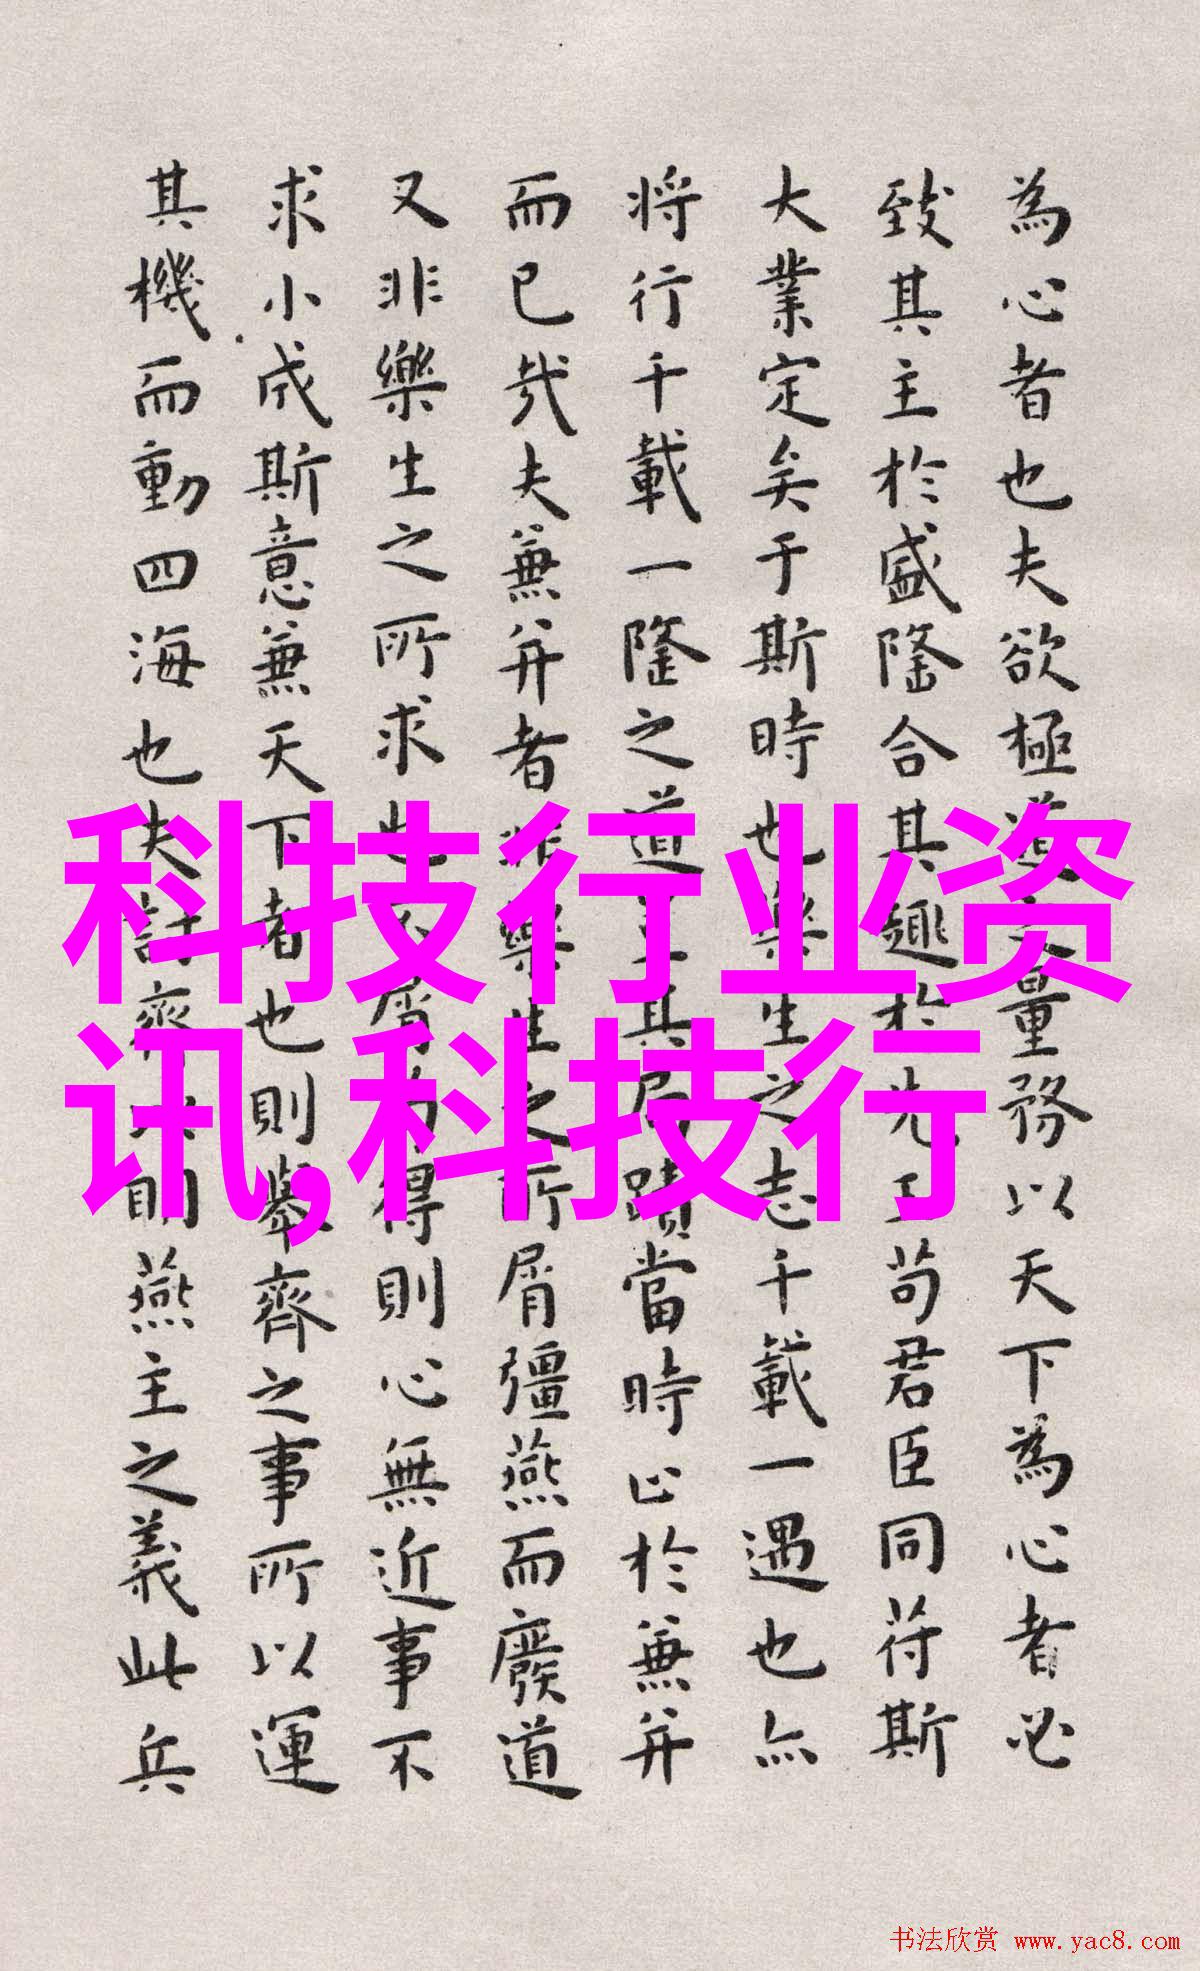 為心者也夫欲極道量務以天下為心者必
致其主於盛隆合其趣於先王苟君臣同符斯
大業定矣于斯時也樂生之志千載一遇也亦
將行千載一隆之道其局蹟當時止於兼并
而已哉夫兼并者非樂生之所屑彊燕而廢道
又非樂生之所求也不屑得則心無近事不
求小成斯意兼天下者也則舉齊之事所以運
其機而動四海也夫討齊明燕主之義此兵
科技行业资
讯,科技行
书法欣赏 www.yac8.com